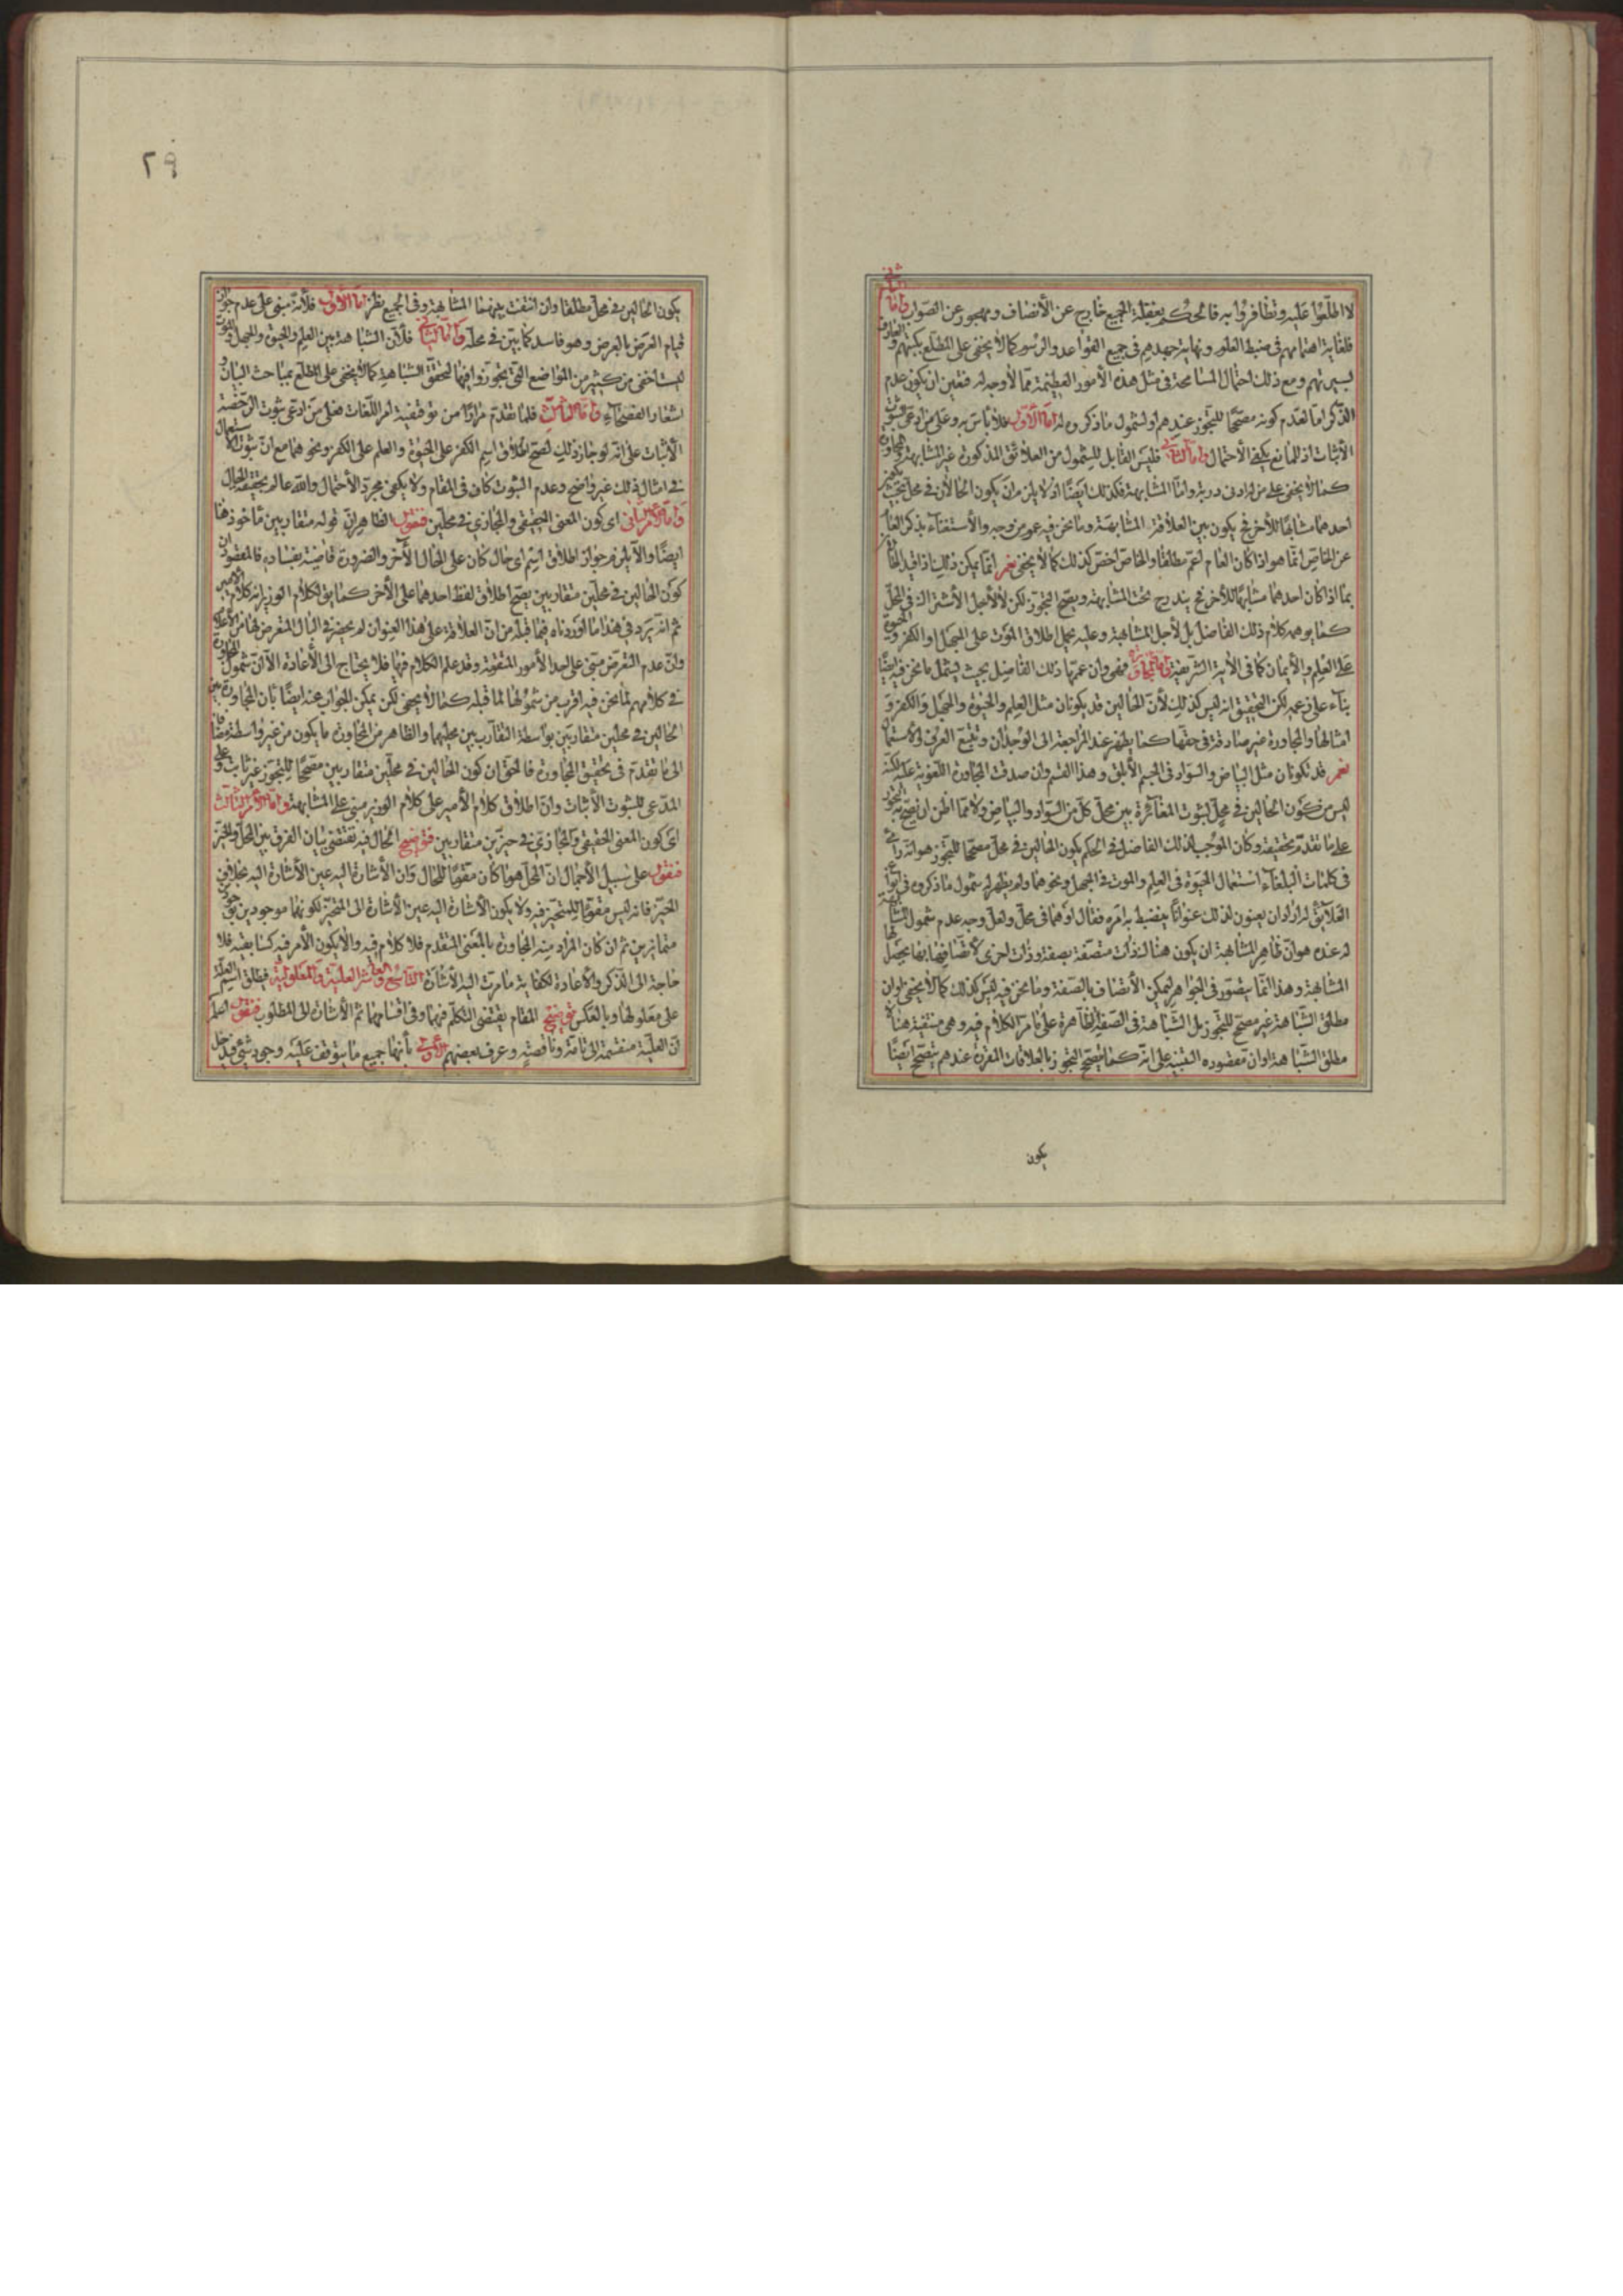 لا اطلعوا عليه وتظافروا به فالحكم بغفلة الجميع خارج عن الأنصاف ومهجور عن الصواب واما الثاني
فلغاية اهتمامهم في ضبط العلوم ونهاية جهدهم في جميع القواعد والرسوم كما لا يخفى على المطلع بكتبهم والعارف
بسيرتهم ومع ذلك احتمال المسامحة في مثل هذه الأمور العظيمة مما لا وجه له فتعين ان يكون عدم
الذكر اما لعدم كونه مصححا للتجوز عندهم او لشمول ما ذكروه له اما الأول فلا بأس به وعلى من ادعى ثبوته
الأثبات اذ للمانع يكفي الأحتمال واما الثاني فليس القابل للشمول من العلائق المذكورة غير المشابهة والمجاورة
كما لا يخفى على من له ادنى دربة واما المشابهة فكذلك ايضا اذ لا يلزم ان يكون الحالان في محل بحيث يكون
احدهما مشابها للأخر فح يكون بين العلاقة المشابهة وما نحن فيه عموم من وجه والأستغناء بذكر العام
عن الخاص انما هو اذا كان العام اعم مطلقا والخاص اخص كذلك كما لا يخفى نعم انما يمكن ذلك اذا قيد الحال
بما اذا كان احدهما مشابها للأخر فح يندرج تحت المشابهة ويصح التجوز لكن لا لأجل الأشتراك في المحل
كما يوهمه كلام ذلك الفاضل بل لأجل المشابهة وعليه يحمل اطلاق الموت على الجهل او الكفر والحيوة
على العلم والأيمان كما في الأية الشريفة واما المجاورة فهي وان عممها ذلك الفاضل بحيث يشمل ما نحن فيه ايضا
بناء على زعمه لكن التحقيق انه ليس كذلك لأن الحالين قد يكونان مثل العلم والحيوة والجهل والكفر و
امثالها والمجاورة غير صادقة في حقها كما يظهر عند المراجعة الى الوجدان وتتبع العرف والأستعمال
نعم قد يكونان مثل البياض والسواد في الجسم الأبلق وهذا القسم وان صدقت المجاورة اللغوية عليه لكنه
ليس من كون الحالين في محل لثبوت المغائرة بين محل كل من السواد والبياض ولا مما اظن ان يصح به التجوز
على ما تقدم تحقيقه وكان الموجب لذلك الفاضل في الحكم بكون الحالين في محل مصححا للتجوز هو انه راى
في كلمات البلغاء استعمال الحيوة في العلم والموت في الجهل ونحوهما ولم يظهر له شمول ما ذكروه في انواع
العلائق له اراد ان يعنون لذلك عنوانا ينضبط به امره فقال او هما في محل ولعل وجه عدم شمول المشابهة
له عنده هو ان ظاهر المشابهة ان يكون هناك ذات متصفة بصفة وذات اخرى لأتصافها بها يحصل
المشابهة وهذا انما يتصور في الجواهر ليمكن الأتصاف بالصفة وما نحن فيه ليس كذلك كما لا يخفى او ان
مطلق الشباهة غير مصحح للتجوز بل الشباهة في الصفة الظاهرة على ما مر الكلام فيه وهي منتفية هنا لا
مطلق الشباهة او ان مقصوده التنبيه على انه كما يصح التجوز بالعلاقات المقررة عندهم يصح ايضا
يكون
٢٩
يكون الحالين في محل مطلقا وان انتفت بينهما المشابهة وفي الجميع نظر اما الأول فلأنه مبنى على عدم جواز
قيام العرض بالعرض وهو فاسد كما بين في محله واما الثاني فلأن الشباهة بين العلم والحيوة والجهل والموت
ليست اخفى من كثير من المواضع التي يتجوز فيها لتحقق الشباهة كما لا يخفى على المطلع بمباحث البيان و
اشعار الفصحاء واما الثالث فلما تقدم مرارا من توقفية امر اللغات فعلى من ادعى ثبوت الرخصة
الأثبات على انه لو جاز ذلك لصح اطلاق اسم الكفر على الحيوة والعلم على الكفر ونحوهما مع ان ثبوت الأستعمال
في امثال ذلك غير واضح وعدم الثبوت كاف في المقام ولا يكفي مجرد الأحتمال والله عالم بحقيقة الحال
واما الأمر الثاني اى كون المعنى الحقيقي والمجازي في محلين فنقول الظاهر ان قوله متقاربين مأخوذ هنا
ايضا والا يلزم جواز اطلاق اسم اى حال كان على الحال الأخر والضرورة قاضية بفساده فالمقصود ان
كون الحالين في محلين متقاربين يصح اطلاق لفظ احدهما على الأخر كما يق لكلام الوزير انه كلام الأمير
ثم انه يرد في هذا ما اوردناه فيما قبله من ان العلاقة على هذا العنوان لم يحضر في البال المتعرض لها من الأعلام
وان عدم التعرض مبنى على احد الأمور المتقدمة وقد علم الكلام فيها فلا يحتاج الى الأعادة الا ان شمول المجاورة
في كلامهم لما نحن فيه اقرب من شمولها لما قبله كما لا يخفى لكن يمكن الجواب عنه ايضا بان المجاورة بين
الحالين في محلين متقاربين بواسطة التقارب بين محليهما والظاهر من المجاورة ما يكون من غير واسطة مضافا
الى ما تقدم في تحقيق المجاورة فالحق ان كون الحالين في محلين متقاربين مصححا للتجوز غير ثابت وعلى
المدعى للثبوت الأثبات وان اطلاق كلام الأمير على كلام الوزير مبنى على المشابهة واما الأمر الثالث
اى كون المعنى الحقيقي والمجازي في حيزين متقاربين فتوضيح الحال فيه تقتضي بيان الفرق بين المحل والحيز
فنقول على سبيل الأجمال ان المحل هو ما كان مقوما للحال وان الأشارة اليه عين الأشارة اليه بخلاف
الحيز فانه ليس مقوما للمتحيز فيه ولا يكون الأشارة اليه عين الأشارة الى المتحيز لكونهما موجودين بوجودين
متمايزين ثم ان كان المراد منه المجاورة بالمعنى المتقدم فلا كلام فيه والا يكون الأمر فيه كسابقيه فلا
حاجة الى الذكر والأعادة لكفاية ما مرت اليه الأشارة التاسع والعاشر العلية والمعلولية فيطلق اسم العلة
على معلولها وبالعكس توضيح المقام يقتضي التكلم فيها وفي اقسامها ثم الأشارة الى المطلوب فنقول اعلم
ان العلية منقسمة الى تامة وناقصة وعرف بعضهم الأولى بأنها جميع ما يتوقف عليه وجود شئ فيدخل